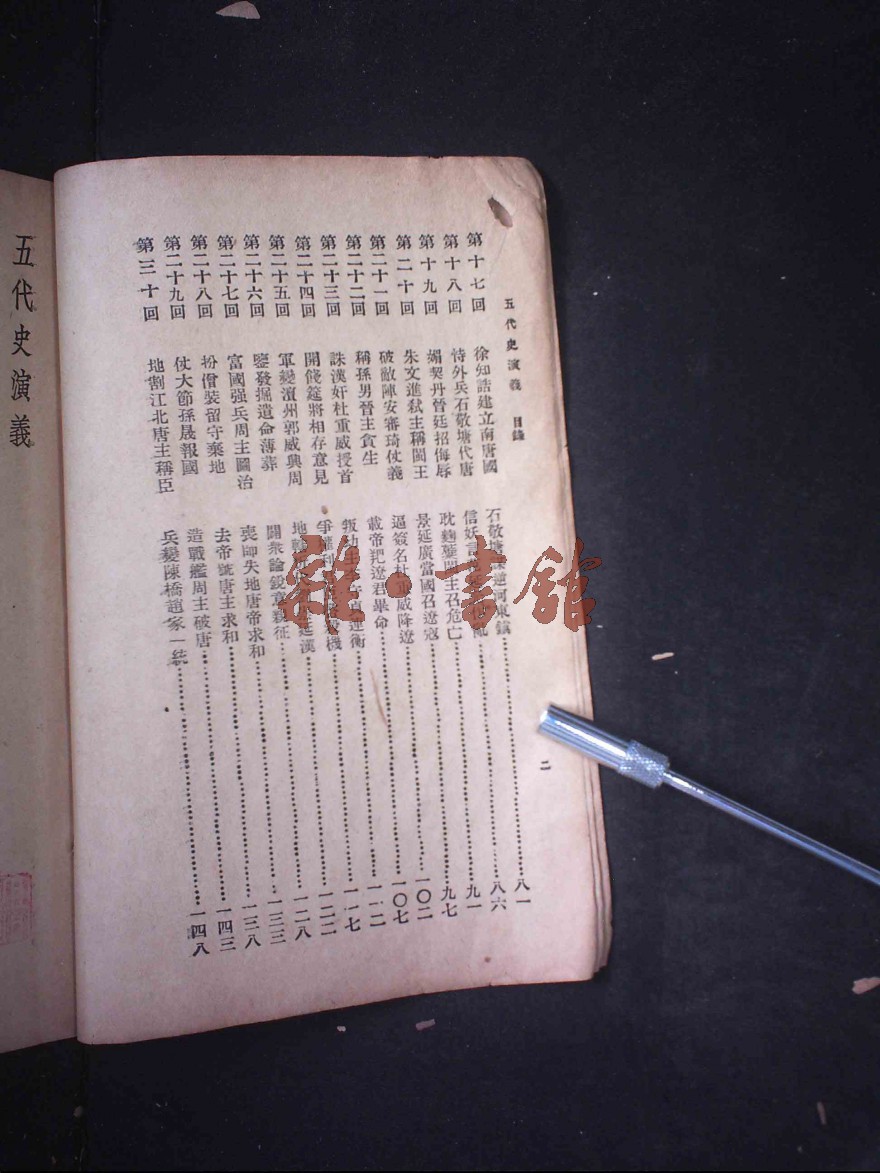 五代史演義 目錄 二
第十七回 徐知誥建立南唐國 石敬塘謀逆河東鎮 八一
第十八回 恃外兵石敬塘代唐 信妖言 亂 八六
第十九回 媚契丹晉廷招侮辱 耽麴蘗閩主召危亡 九一
第二十回 朱文進弒主稱閩王 景延廣當國召遼寇 九七
第二十一回 破敵陣安審琦仗義 逼簽名杜重威降遼 一〇二
第二十二回 稱孫男晉主貪生 載帝羓遼君畢命 一〇七
第二十三回 誅漢奸杜重威授首 叛幼主 守貞連衡 一一二
第二十四回 開餞筵將相存意見 爭權利 殺機 一一七
第二十五回 軍變澶州郭威興周 地 延漢 一二二
第二十六回 鑒發掘遺命薄葬 闢衆論銳意親征 一二八
第二十七回 富國强兵周主圖治 喪師失地唐帝求和 一三三
第二十八回 扮僧裝留守棄地 去帝號唐主求和 一三八
第二十九回 仗大節孫晟報國 造戰艦周主破唐 一四三
第三十回 地割江北唐主稱臣 兵變陳橋趙家一統 一四八
五代史演義
雜·書館